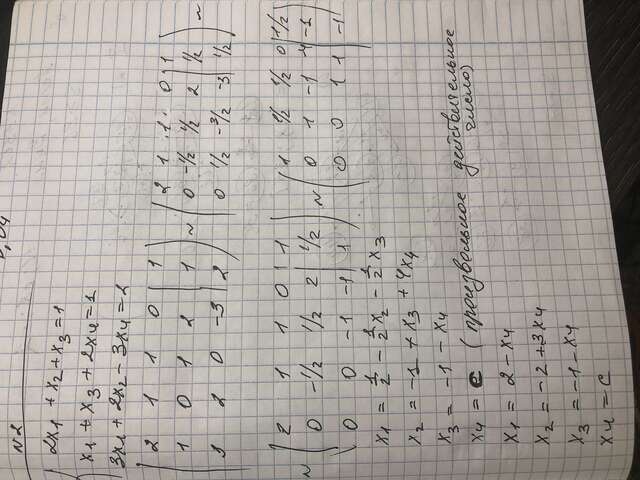 N2
2x1 + x2 + x3 = 1
x1 + x3 + 2x4 = 1
3x1 + 2x2 - 3x4 = 2
2 1 1 0 | 1 2 1 1 0 | 1
1 0 1 2 | 1 ~ 0 -1/2 1/2 2 | 1/2 ~
3 2 0 -3 | 2 0 1/2 -3/2 -3 | 1/2
2 1 1 0 | 1 1 1/2 1/2 0 | 1/2
~ 0 -1/2 1/2 2 | 1/2 ~ 0 1 -1 -4 | -1
0 0 -1 -1 | 1 0 0 1 1 | -1
x1 = 1/2 - 1/2 x2 - 1/2 x3
x2 = -1 + x3 + 4x4
x3 = -1 - x4
x4 = c (произвольное действительное
число)
x1 = 2 - x4
x2 = -2 + 3x4
x3 = -1 - x4
x4 = c